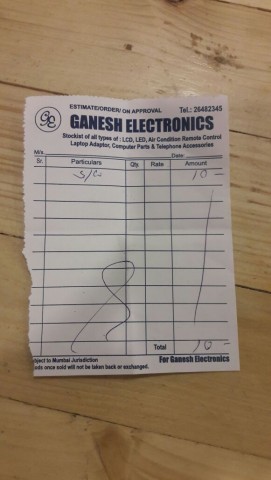 ESTIMATE/ORDER/ ON APPROVAL Tel.: 26482345
GE GANESH ELECTRONICS
Stockist of all types of : LCD, LED, Air Condition Remote Control
Laptop Adaptor, Computer Parts & Telephone Accessories
M/s. Date
Sr. Particulars Qty. Rate Amount
10 -
Total 10 -
bject to Mumbai Jurisdiction For Ganesh Electronics
ods once sold will not be taken back or exchanged.